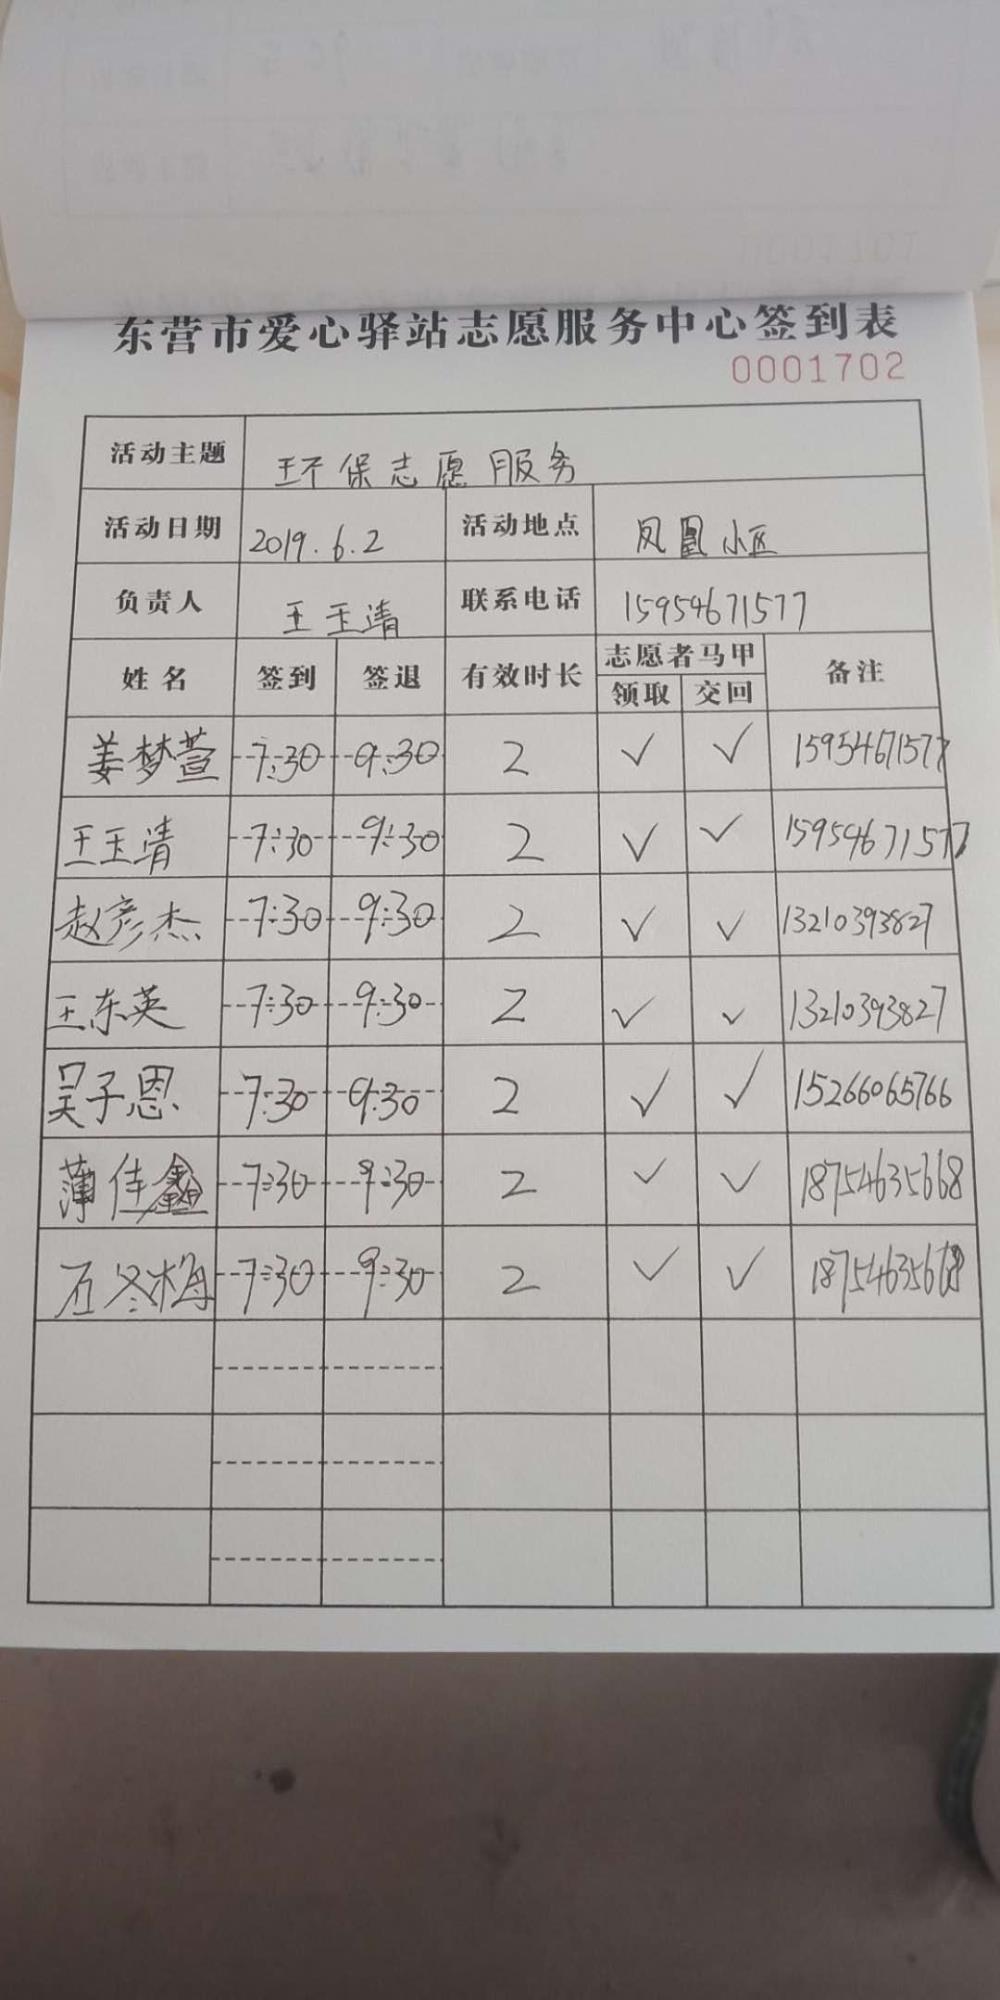 东营市爱心驿站志愿服务中心签到表
0001702
活动主题 环保志愿服务
活动日期 2019.6.2 活动地点 凤凰小区
负责人 王玉清 联系电话 15954671577
姓名 签到 签退 有效时长 志愿者马甲 备注
领取 交回
姜梦萱 7:30 9:30 2 ✓ ✓ 15954671577
王玉清 7:30 9:30 2 ✓ ✓ 15954671577
赵彦杰 7:30 9:30 2 ✓ ✓ 13210393827
王东英 7:30 9:30 2 ✓ ✓ 13210393827
吴子恩 7:30 9:30 2 ✓ ✓ 15266065766
薄佳鑫 7:30 9:30 2 ✓ ✓ 18754635668
石冬梅 7:30 9:30 2 ✓ ✓ 18754635668